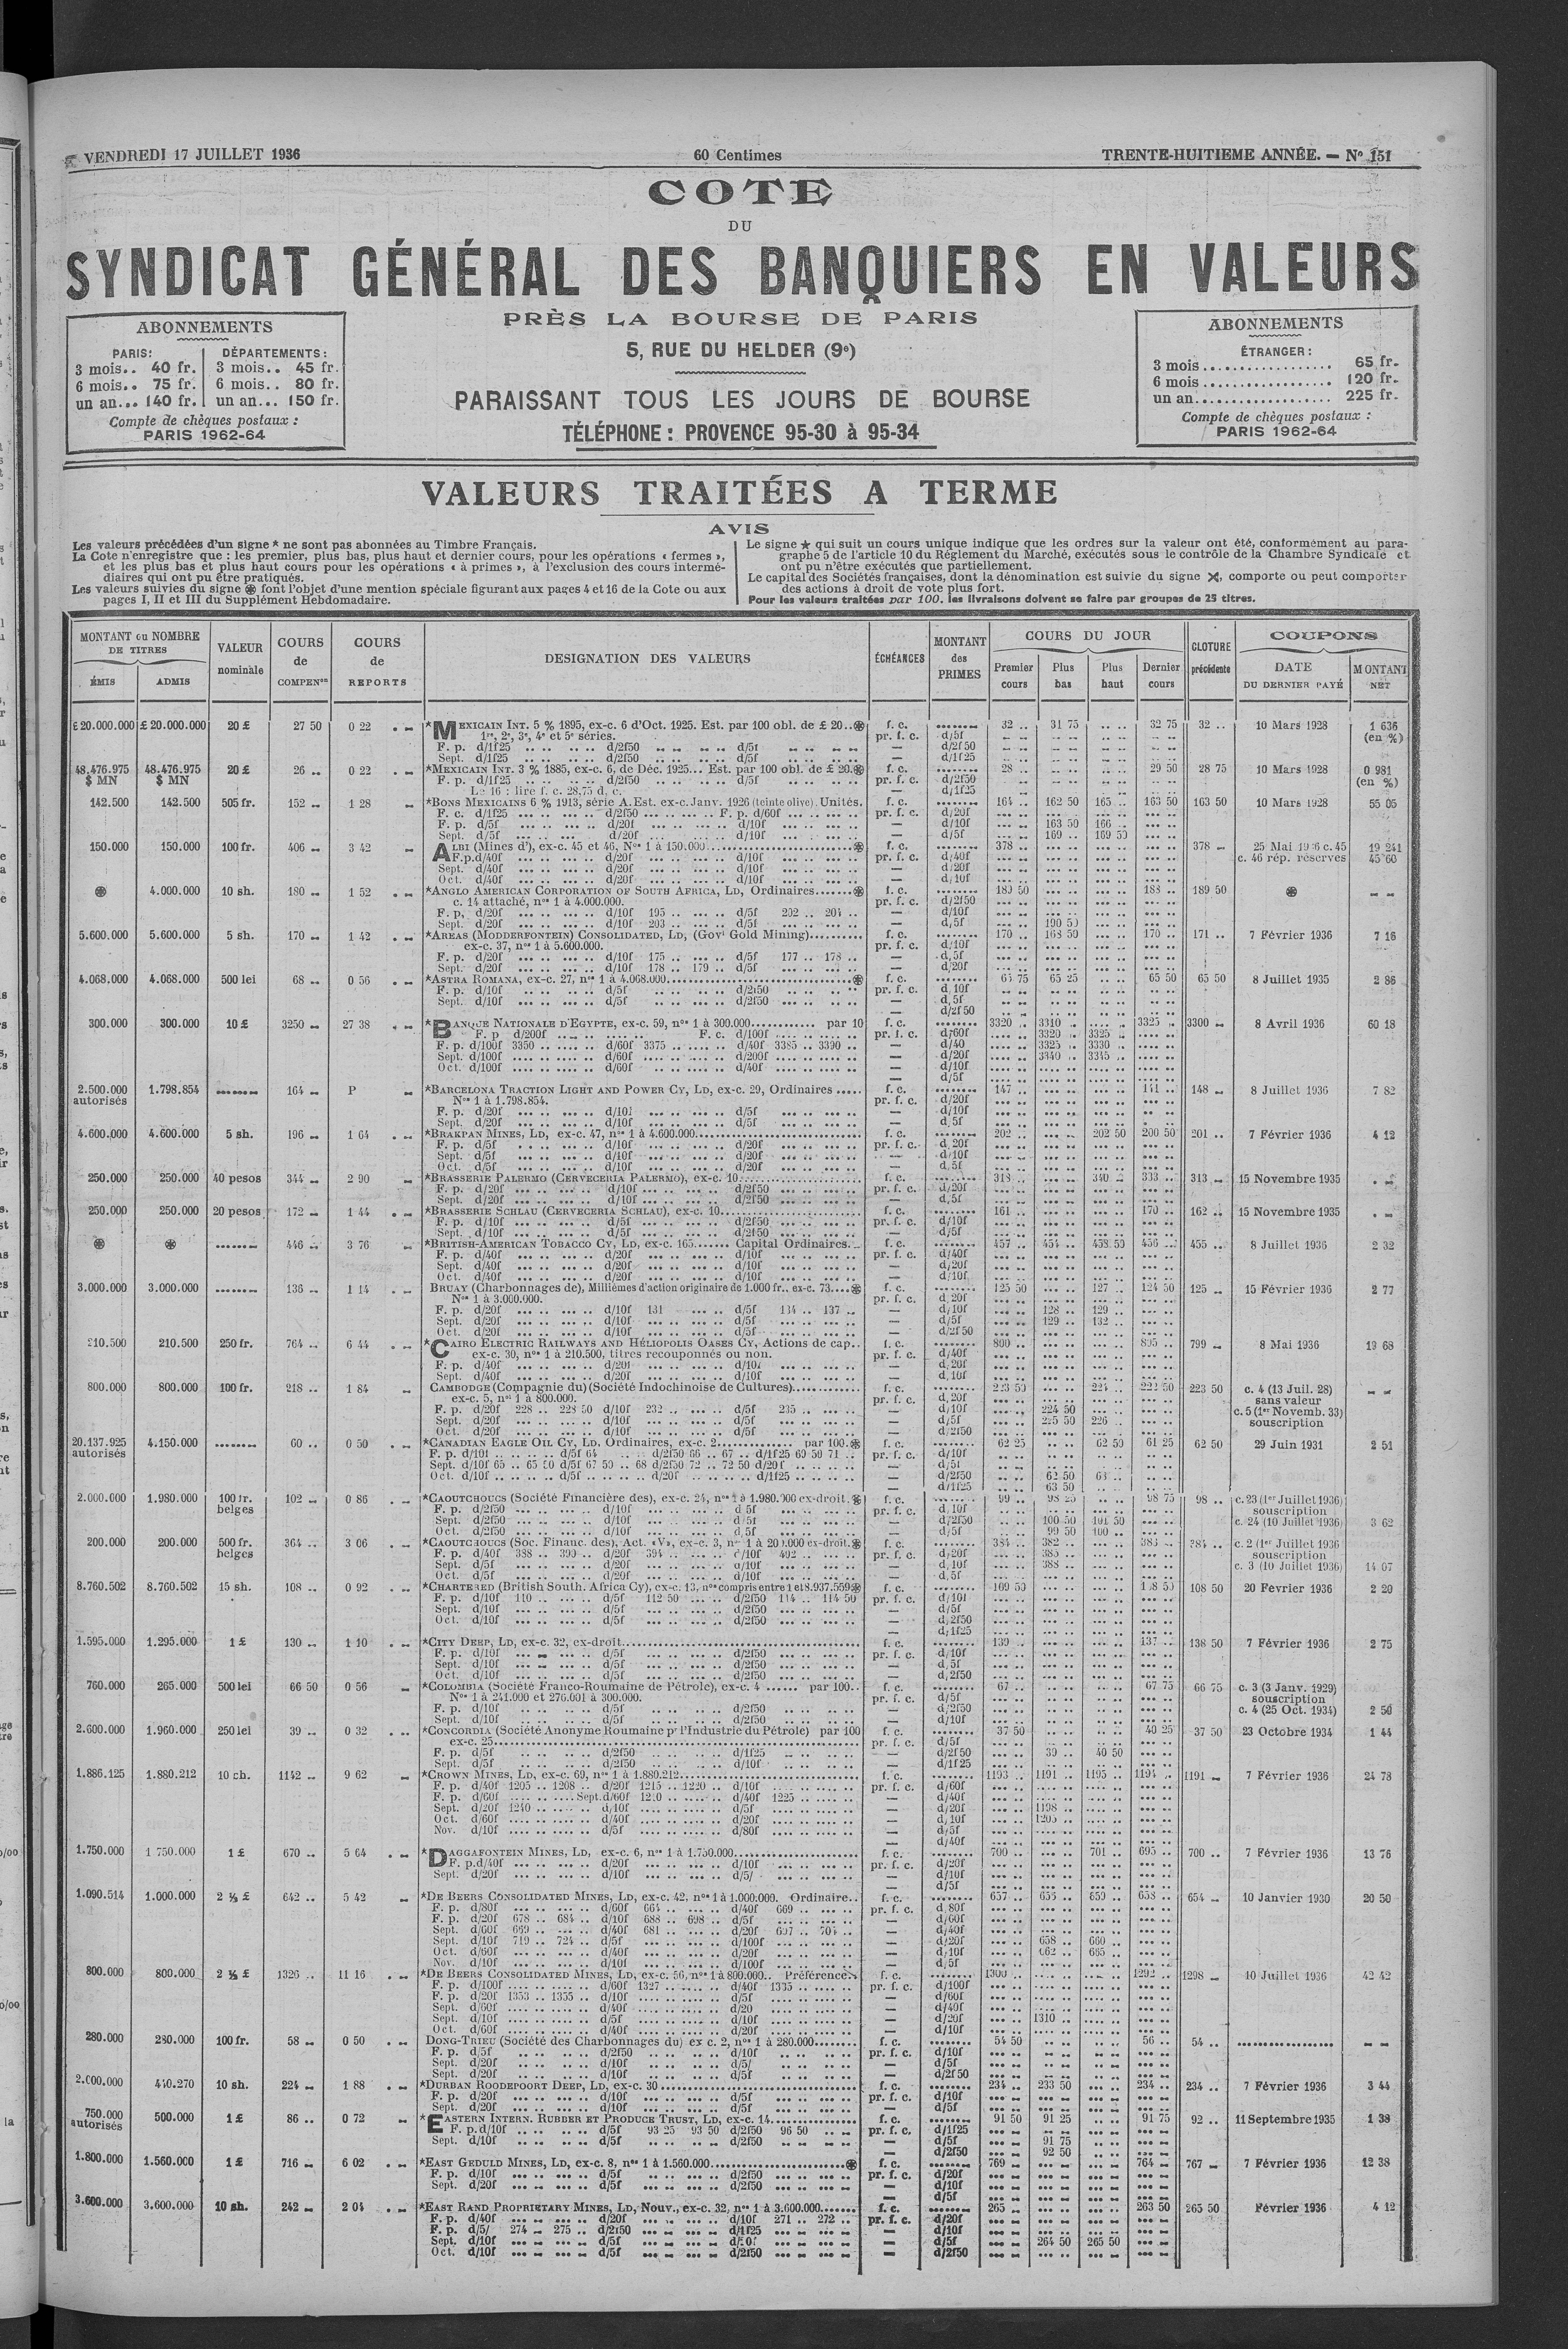 VENDREDI 17 JUILLET 1936
60 Centimes
TRENTE-HUITIEME ANNÉE. — Nº 151
COTE
DU
SYNDICAT GÉNÉRAL DES BANQUIERS EN VALEURS
PRÈS LA BOURSE DE PARIS
5, RUE DU HELDER (9e)
PARAISSANT TOUS LES JOURS DE BOURSE
TÉLÉPHONE : PROVENCE 95-30 à 95-34
ABONNEMENTS
PARIS: DÉPARTEMENTS:
3 mois.. 40 fr. 3 mois.. 45 fr.
6 mois.. 75 fr. 6 mois.. 80 fr.
un an... 140 fr. un an... 150 fr.
Compte de chèques postaux :
PARIS 1962-64
ABONNEMENTS
ÉTRANGER :
3 mois .................. 65 fr.
6 mois .................. 120 fr.
un an................... 225 fr.
Compte de chèques postaux :
PARIS 1962-64
VALEURS TRAITÉES A TERME
AVIS
Les valeurs précédées d'un signe * ne sont pas abonnées au Timbre Français.
La Cote n'enregistre que : les premier, plus bas, plus haut et dernier cours, pour les opérations « fermes »,
et les plus bas et plus haut cours pour les opérations « à primes », à l'exclusion des cours intermé-
diaires qui ont pu être pratiqués.
Les valeurs suivies du signe ⊛ font l'objet d'une mention spéciale figurant aux pages 4 et 16 de la Cote ou aux
pages I, II et III du Supplément Hebdomadaire.
Le signe ★ qui suit un cours unique indique que les ordres sur la valeur ont été, conformément au para-
graphe 5 de l'article 10 du Réglement du Marché, exécutés sous le contrôle de la Chambre Syndicale et
ont pu n'être exécutés que partiellement.
Le capital des Sociétés françaises, dont la dénomination est suivie du signe ✕, comporte ou peut comporter
des actions à droit de vote plus fort.
Pour les valeurs traitées par 100, les livraisons doivent se faire par groupes de 25 titres.
MONTANT ou NOMBRE DE TITRES
ÉMIS ADMIS
VALEUR nominale
COURS de COMPENon
COURS de REPORTS
DESIGNATION DES VALEURS
ÉCHÉANCES
MONTANT des PRIMES
COURS DU JOUR
Premier cours Plus bas Plus haut Dernier cours
CLOTURE précédente
COUPONS
DATE DU DERNIER PAYÉ MONTANT NET
£ 20.000.000 £ 20.000.000 20 £ 27 50 0 22 *MEXICAIN INT. 5 % 1895, ex-c. 6 d'Oct. 1925. Est. par 100 obl. de £ 20..⊛ f. c. 32 .. 31 75 .. .. 32 75 32 .. 10 Mars 1928 1 636 (en %)
1re, 2e, 3e, 4e et 5e séries. pr. f. c. d/5f
F. p. d/1f25 d/2f50 d/5f — d/2f50
Sept. d/1f25 d/2f50 d/5f — d/1f25
48.476.975 $ MN 48.476.975 $ MN 20 £ 26 .. 0 22 *MEXICAIN INT. 3 % 1885, ex-c. 6, de Déc. 1925... Est. par 100 obl. de £ 20.⊛ f. c. 28 .. 29 50 28 75 10 Mars 1928 0 981 (en %)
F. p. d/1f25 d/2f50 d/5f pr. f. c. d/2f50
Le 16 : lire f. c. 28,75 d. c. — d/1f25
142.500 142.500 505 fr. 152 .. 1 28 *BONS MEXICAINS 6 % 1913, série A. Est. ex-c. Janv. 1926 (teinte olive). Unités. f. c. 164 .. 162 50 165 .. 163 50 163 50 10 Mars 1928 55 05
F. c. d/1f25 d/2f50 F. p. d/60f pr. f. c. d/20f
F. p. d/5f d/20f d/10f — d/10f 163 50 166 ..
Sept. d/5f d/20f d/10f — d/5f 169 .. 169 50
150.000 150.000 100 fr. 406 .. 3 42 ALBI (Mines d'), ex-c. 45 et 46, Nos 1 à 150.000 ⊛ f. c. 378 .. 378 .. 25 Mai 1936 c. 45 19 241
F.p. d/40f d/20f d/10f pr. f. c. d/40f c. 46 rép. réserves 45 60
Sept. d/40f d/20f d/10f — d/20f
Oct. d/40f d/20f d/10f — d/10f
⊛ 4.000.000 10 sh. 180 .. 1 52 *ANGLO AMERICAN CORPORATION OF SOUTH AFRICA, LD, Ordinaires ⊛ f. c. 189 50 188 .. 189 50 ⊛
c. 14 attaché, nos 1 à 4.000.000. pr. f. c. d/2f50
F. p. d/20f d/10f 195 .. d/5f 202 .. 204 .. — d/10f
Sept. d/20f d/10f 203 .. d/5f — d/5f 190 50
5.600.000 5.600.000 5 sh. 170 .. 1 42 *AREAS (MODDERFONTEIN) CONSOLIDATED, LD, (Govt Gold Mining) f. c. 170 .. 168 50 170 .. 171 .. 7 Février 1936 7 16
ex-c. 37, nos 1 à 5.600.000. pr. f. c. d/10f
F. p. d/20f d/10f 175 .. d/5f 177 .. 178 .. — d/5f
Sept. d/20f d/10f 178 .. 179 .. d/5f — d/20f
4.068.000 4.068.000 500 lei 68 .. 0 56 *ASTRA ROMANA, ex-c. 27, nos 1 à 4.068.000 ⊛ f. c. 65 75 65 25 65 50 65 50 8 Juillet 1935 2 86
F. p. d/10f d/5f d/2f50 pr. f. c. d/10f
Sept. d/10f d/5f d/2f50 — d/5f
— d/2f50
300.000 300.000 10 £ 3250 .. 27 38 *BANQUE NATIONALE D'EGYPTE, ex-c. 59, nos 1 à 300.000 par 10 f. c. 3320 .. 3310 .. 3325 .. 3300 .. 8 Avril 1936 60 18
F. p. d/200f F. c. d/100f pr. f. c. d/60f 3320 .. 3325 ..
F. p. d/100f 3350 .. d/60f 3375 .. d/40f 3385 .. 3390 .. — d/40 3325 .. 3330 ..
Sept. d/100f d/60f d/200f — d/20f 3340 .. 3345 ..
Oct. d/100f d/60f d/40f — d/10f
— d/5f
2.500.000 autorisés 1.798.854 164 .. P *BARCELONA TRACTION LIGHT AND POWER CY, LD, ex-c. 29, Ordinaires f. c. 147 .. 141 .. 148 .. 8 Juillet 1936 7 82
Nos 1 à 1.798.854. pr. f. c. d/20f
F. p. d/20f d/10f d/5f — d/10f
Sept. d/20f d/10f d/5f — d/5f
4.600.000 4.600.000 5 sh. 196 .. 1 64 *BRAKPAN MINES, LD, ex-c. 47, nos 1 à 4.600.000 f. c. 202 .. 202 50 200 50 201 .. 7 Février 1936 4 12
F. p. d/5f d/10f d/20f pr. f. c. d/20f
Sept. d/5f d/10f d/20f — d/10f
Oct. d/5f d/10f d/20f — d/5f
250.000 250.000 40 pesos 344 .. 2 90 *BRASSERIE PALERMO (CERVECERIA PALERMO), ex-c. 10 f. c. 318 .. 340 .. 333 .. 313 .. 15 Novembre 1935
F. p. d/20f d/10f d/2f50 pr. f. c. d/20f
Sept. d/20f d/10f d/2f50 — d/5f
250.000 250.000 20 pesos 172 .. 1 44 *BRASSERIE SCHLAU (CERVECERIA SCHLAU), ex-c. 10 f. c. 161 .. 170 .. 162 .. 15 Novembre 1935
F. p. d/10f d/5f d/2f50 pr. f. c. d/10f
Sept. d/10f d/5f d/2f50 — d/5f
⊛ ⊛ 446 .. 3 76 *BRITISH-AMERICAN TOBACCO CY, LD, ex-c. 165 Capital Ordinaires. f. c. 457 .. 454 .. 458 50 456 .. 455 .. 8 Juillet 1936 2 32
F. p. d/40f d/20f d/10f pr. f. c. d/40f
Sept. d/40f d/20f d/10f — d/20f
Oct. d/40f d/20f d/10f — d/10f
3.000.000 3.000.000 136 .. 1 14 BRUAY (Charbonnages de), Millièmes d'action originaire de 1.000 fr., ex-c. 73 ⊛ f. c. 125 50 127 .. 124 50 125 .. 15 Février 1936 2 77
Nos 1 à 3.000.000. pr. f. c. d/20f
F. p. d/20f d/10f 131 d/5f 134 .. 137 .. — d/10f 128 .. 129 ..
Sept. d/20f d/10f d/5f — d/5f 129 .. 132 ..
Oct. d/20f d/10f d/5f — d/2f50
210.500 210.500 250 fr. 764 .. 6 44 *CAIRO ELECTRIC RAILWAYS AND HÉLIOPOLIS OASES CY, Actions de cap.. f. c. 800 .. 805 .. 799 .. 8 Mai 1936 19 68
ex-c. 30, nos 1 à 210.500, titres recouponnés ou non. pr. f. c. d/40f
F. p. d/40f d/20f d/10f — d/20f
Sept. d/40f d/20f d/10f — d/10f
800.000 800.000 100 fr. 218 .. 1 84 CAMBODGE (Compagnie du) (Société Indochinoise de Cultures) f. c. 223 50 224 .. 222 50 223 50 c. 4 (13 Juil. 28)
ex-c. 5, nos 1 à 800.000. pr. f. c. d/20f sans valeur
F. p. d/20f 228 .. 228 50 d/10f 232 .. d/5f 235 .. — d/10f 224 50 c. 5 (1er Novemb. 33)
Sept. d/20f d/10f d/5f — d/5f 225 50 226 .. souscription
Oct. d/20f d/10f d/5f — d/2f50
20.137.925 autorisés 4.150.000 60 .. 0 50 *CANADIAN EAGLE OIL CY, LD, Ordinaires, ex-c. 2 par 100.⊛ f. c. 62 25 62 50 61 25 62 50 29 Juin 1931 2 51
F. p. d/10f d/5f 64 d/2f50 66 .. 67 .. d/1f25 69 50 71 .. pr. f. c. d/10f
Sept. d/10f 65 .. 65 50 d/5f 67 50 .. 68 d/2f50 72 .. 72 50 d/20f — d/5f
Oct. d/10f d/5f d/20f d/1f25 — d/2f50 62 50
— d/1f25 63 50
2.000.000 1.980.000 100 fr. belges 102 .. 0 86 *CAOUTCHOUCS (Société Financière des), ex-c. 24, nos 1 à 1.980.000 ex-droit.⊛ f. c. 99 .. 98 25 98 75 98 .. c. 23 (1er Juillet 1936)
F. p. d/2f50 d/10f d/5f pr. f. c. d/10f souscription
Sept. d/2f50 d/10f d/5f — d/2f50 100 50 101 50 c. 24 (10 Juillet 1936) 3 62
Oct. d/2f50 d/10f d/5f — d/5f 99 50 100 ..
200.000 200.000 500 fr. belges 364 .. 3 06 *CAOUTCHOUCS (Soc. Financ. des), Act. «V», ex-c. 3, nos 1 à 200.000 ex-droit.⊛ f. c. 384 .. 382 .. 383 .. 384 .. c. 2 (1er Juillet 1936
F. p. d/40f 388 .. 390 .. d/20f 394 .. d/10f 402 .. pr. f. c. d/20f 385 .. souscription
Sept. d/5f d/20f d/10f — d/10f 388 .. c. 3 (10 Juillet 1936) 14 07
Oct. d/5f d/20f d/10f — d/5f
8.760.502 8.760.502 15 sh. 108 .. 0 92 *CHARTERED (British South. Africa Cy), ex-c. 13, nos compris entre 1 et 8.937.559⊛ f. c. 109 50 108 50 108 50 20 Fevrier 1936 2 20
F. p. d/10f 110 .. d/5f 112 50 d/2f50 114 .. 114 50 pr. f. c. d/10f
Sept. d/10f d/5f d/2f50 — d/5f
Oct. d/10f d/5f d/2f50 — d/2f50
— d/1f25
1.595.000 1.295.000 1 £ 130 .. 1 10 *CITY DEEP, LD, ex-c. 32, ex-droit f. c. 139 .. 137 .. 138 50 7 Février 1936 2 75
F. p. d/10f d/5f d/2f50 pr. f. c. d/10f
Sept. d/10f d/5f d/2f50 — d/5f
Oct. d/10f d/5f d/2f50 — d/2f50
760.000 265.000 500 lei 66 50 0 56 *COLOMBIA (Société Franco-Roumaine de Pétrole), ex-c. 4 par 100.. f. c. 67 .. 67 75 66 75 c. 3 (3 Janv. 1929)
Nos 1 à 241.000 et 276.001 à 300.000. pr. f. c. d/5f souscription
F. p. d/10f d/5f d/2f50 — d/2f50 c. 4 (25 Oct. 1934) 2 50
Sept. d/10f d/5f d/2f50 — d/10f
2.600.000 1.960.000 250 lei 39 .. 0 32 *CONCORDIA (Société Anonyme Roumaine pr l'Industrie du Pétrole) par 100 f. c. 37 50 40 25 37 50 23 Octobre 1934 1 44
ex-c. 25 pr. f. c. d/5f
F. p. d/5f d/2f50 d/1f25 — d/2f50 39 .. 40 50
Sept. d/5f d/2f50 d/10f — d/1f25
1.886.125 1.880.212 10 ch. 1142 .. 9 62 *CROWN MINES, LD, ex-c. 69, nos 1 à 1.880.212 f. c. 1193 .. 1191 .. 1195 .. 1194 .. 1191 .. 7 Février 1936 24 78
F. p. d/40f 1205 .. 1208 .. d/20f 1215 .. 1220 .. d/10f pr. f. c. d/60f
F. p. d/60f Sept. d/60f 1210 .. d/40f 1225 .. — d/40f
Sept. d/20f 1240 .. d/10f d/5f — d/20f 1198 ..
Oct. d/60f d/40f d/20f — d/10f 1205 ..
Nov. d/10f d/5f d/80f — d/5f
— d/40f
1.750.000 1 750.000 1 £ 670 .. 5 64 *DAGGAFONTEIN MINES, LD, ex-c. 6, nos 1 à 1.750.000 f. c. 700 .. 701 .. 695 .. 700 .. 7 Février 1936 13 76
F. p. d/40f d/20f d/10f pr. f. c. d/20f
Sept. d/20f d/10f d/5f — d/10f
— d/5f
1.090.514 1.000.000 2 ½ £ 642 .. 5 42 *DE BEERS CONSOLIDATED MINES, LD, ex-c. 42, nos 1 à 1.000.000. Ordinaire.. f. c. 657 .. 655 .. 659 .. 658 .. 654 .. 10 Janvier 1930 20 50
F. p. d/80f d/60f 664 .. d/40f 669 .. pr. f. c. d/80f
F. p. d/20f 678 .. 684 .. d/10f 688 .. 698 .. d/5f — d/60f
Sept. d/60f 669 .. d/40f 681 .. d/20f 697 .. 704 .. — d/40f
Sept. d/10f 719 .. 724 .. d/5f d/100f — d/20f 658 .. 660 ..
Oct. d/60f d/40f d/20f — d/10f 662 .. 665 ..
Nov. d/10f d/10f d/100f — d/5f
800.000 800.000 2 ½ £ 1326 .. 11 16 *DE BEERS CONSOLIDATED MINES, LD, ex-c. 56, nos 1 à 800.000.. Préférence. f. c. 1300 .. 1292 .. 1298 .. 10 Juillet 1936 42 42
F. p. d/100f d/60f 1327 .. d/40f 1335 .. pr. f. c. d/100f
F. p. d/20f 1353 .. 1355 .. d/10f d/5f — d/60f
Sept. d/60f d/40f d/20 — d/40f
Sept. d/10f d/5f d/10f — d/20f 1310 ..
Oct. d/60f d/40f d/20f — d/10f
280.000 280.000 100 fr. 58 .. 0 50 DONG-TRIEU (Société des Charbonnages du) ex c. 2, nos 1 à 280.000 f. c. 54 50 56 .. 54 ..
F. p. d/5f d/2f50 d/10f pr. f. c. d/10f
Sept. d/20f d/10f d/5f — d/5f
Sept. d/20f d/10f d/5f — d/2f50
2.000.000 440.270 10 sh. 224 .. 1 88 *DURBAN ROODEPOORT DEEP, LD, ex-c. 30 f. c. 234 .. 233 50 234 .. 234 .. 7 Février 1936 3 44
F. p. d/20f d/10f d/5f pr. f. c. d/10f
Sept. d/20f d/10f d/5f — d/5f
750.000 autorisés 500.000 1 £ 86 .. 0 72 *EASTERN INTERN. RUBBER ET PRODUCE TRUST, LD, ex-c. 14 f. c. 91 50 91 25 91 75 92 .. 11 Septembre 1935 1 38
F. p. d/10f d/5f 93 25 93 50 d/2f50 96 50 pr. f. c. d/1f25
Sept. d/10f d/5f d/2f50 — d/5f 91 75
— d/2f50 92 50
1.800.000 1.560.000 1 £ 716 .. 6 02 *EAST GEDULD MINES, LD, ex-c. 8, nos 1 à 1.560.000 ⊛ f. c. 769 .. 764 .. 767 .. 7 Février 1936 12 38
F. p. d/10f d/5f d/2f50 pr. f. c. d/20f
Sept. d/20f d/5f d/2f50 — d/10f
— d/5f
3.600.000 3.600.000 10 sh. 242 .. 2 04 *EAST RAND PROPRIETARY MINES, LD, Nouv., ex-c. 32, nos 1 à 3.600.000 f. c. 265 .. 263 50 265 50 Février 1936 4 12
F. p. d/40f d/20f d/10f 271 .. 272 .. pr. f. c. d/20f
F. p. d/5f 274 .. 275 .. d/2f50 d/1f25 — d/10f
Sept. d/10f d/5f — d/5f 264 50 265 50
Oct. d/10f d/5f d/2f50 — d/2f50